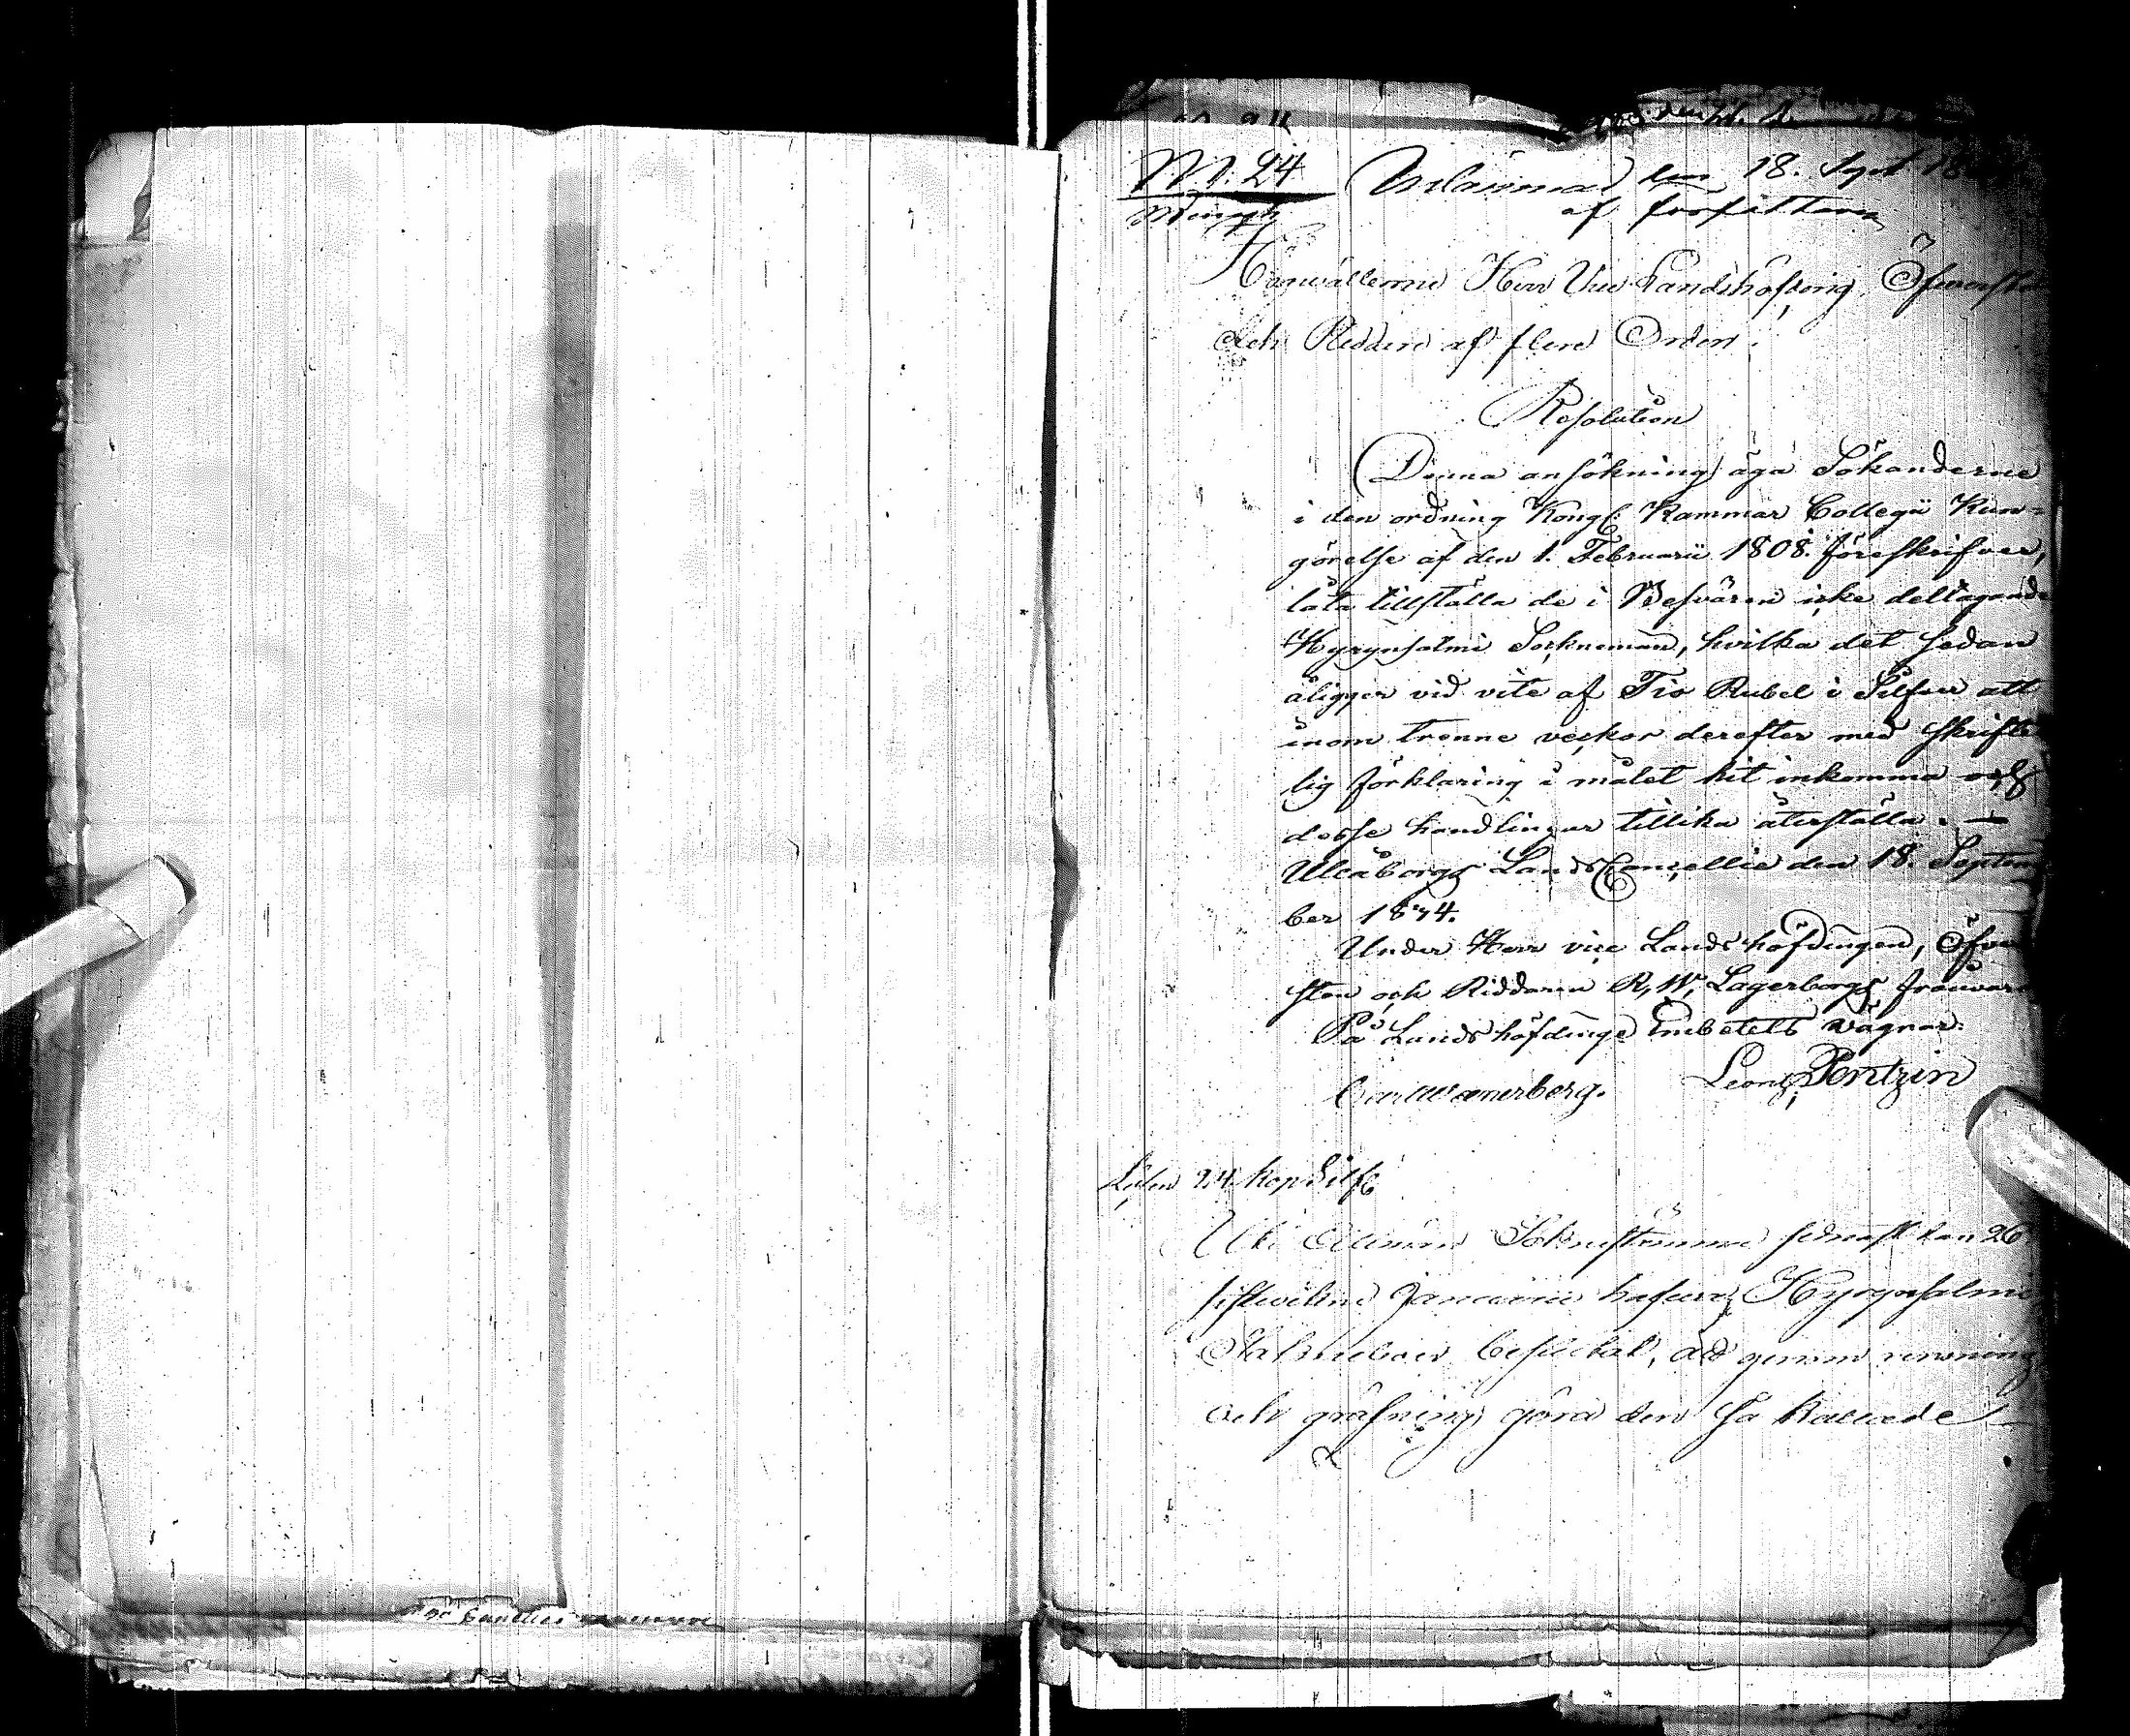 N. 24
Inlämnad den 18. Sept 18
af
Högvällborne Herr Vice Landshöfding, Öfverste
och Riddare af flere Orden.
Resolution
Denna ansökning äga Sökanderne
i den ordning Kongl. Kammar Collegii Kun=
görelse af den 1. Februarii 1808. föreskrifver,
låta tillställa de i Besvären icke deltagande
Hyrynsalmi Sockneman, hvilka det sedan
åligger vid vite af Tio Rubel i Silfver att
inom trenne veckor derefter med skrift=
lig förklaring i målet hit inkomma och
desse handlingar tillika återställa. —
Uleåborgs Lands Cancellie den 18. Septem
ber 1834.
Under Herr vice Landshöfdingen, Öfver
sten och Riddaren R, W, Lagerborgs frånvaro
På Landshöfdinge Embetets vägnar.
Leonh Pentzin
Carl Wænerberg.
Lösen 24 kop Silf
Uti Sockenstämma den 26
sistvikne Januarii hafva Hyrynsalmi
beslutat, att genom rensning
och gräfning göra den så kallade